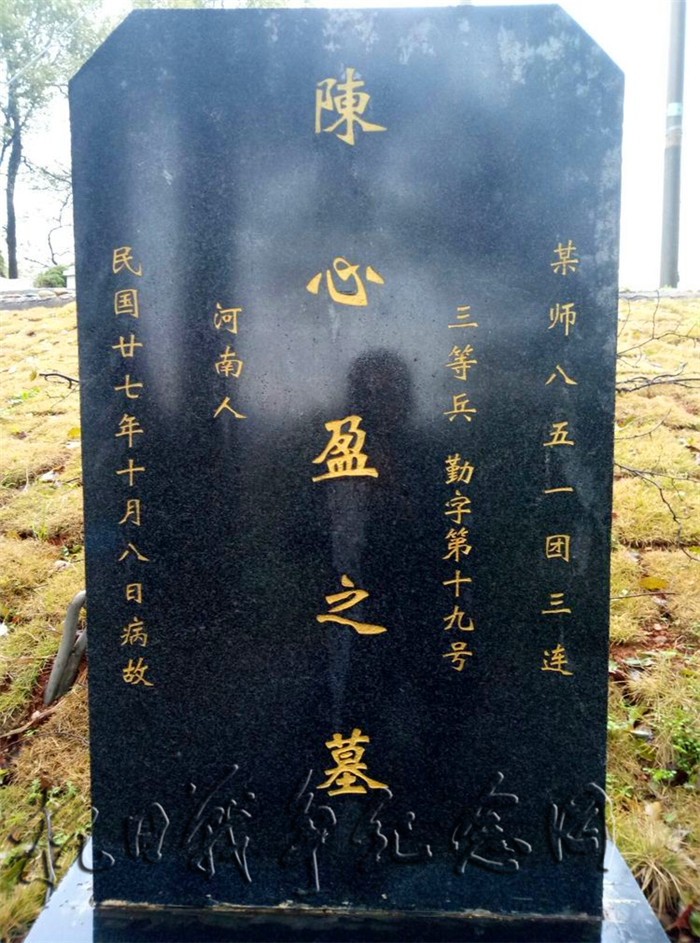 某师八五一团三连
三等兵 勤字第十九号
陳心盈之墓
河南人
民国廿七年十月八日病故
抗日战争纪念网